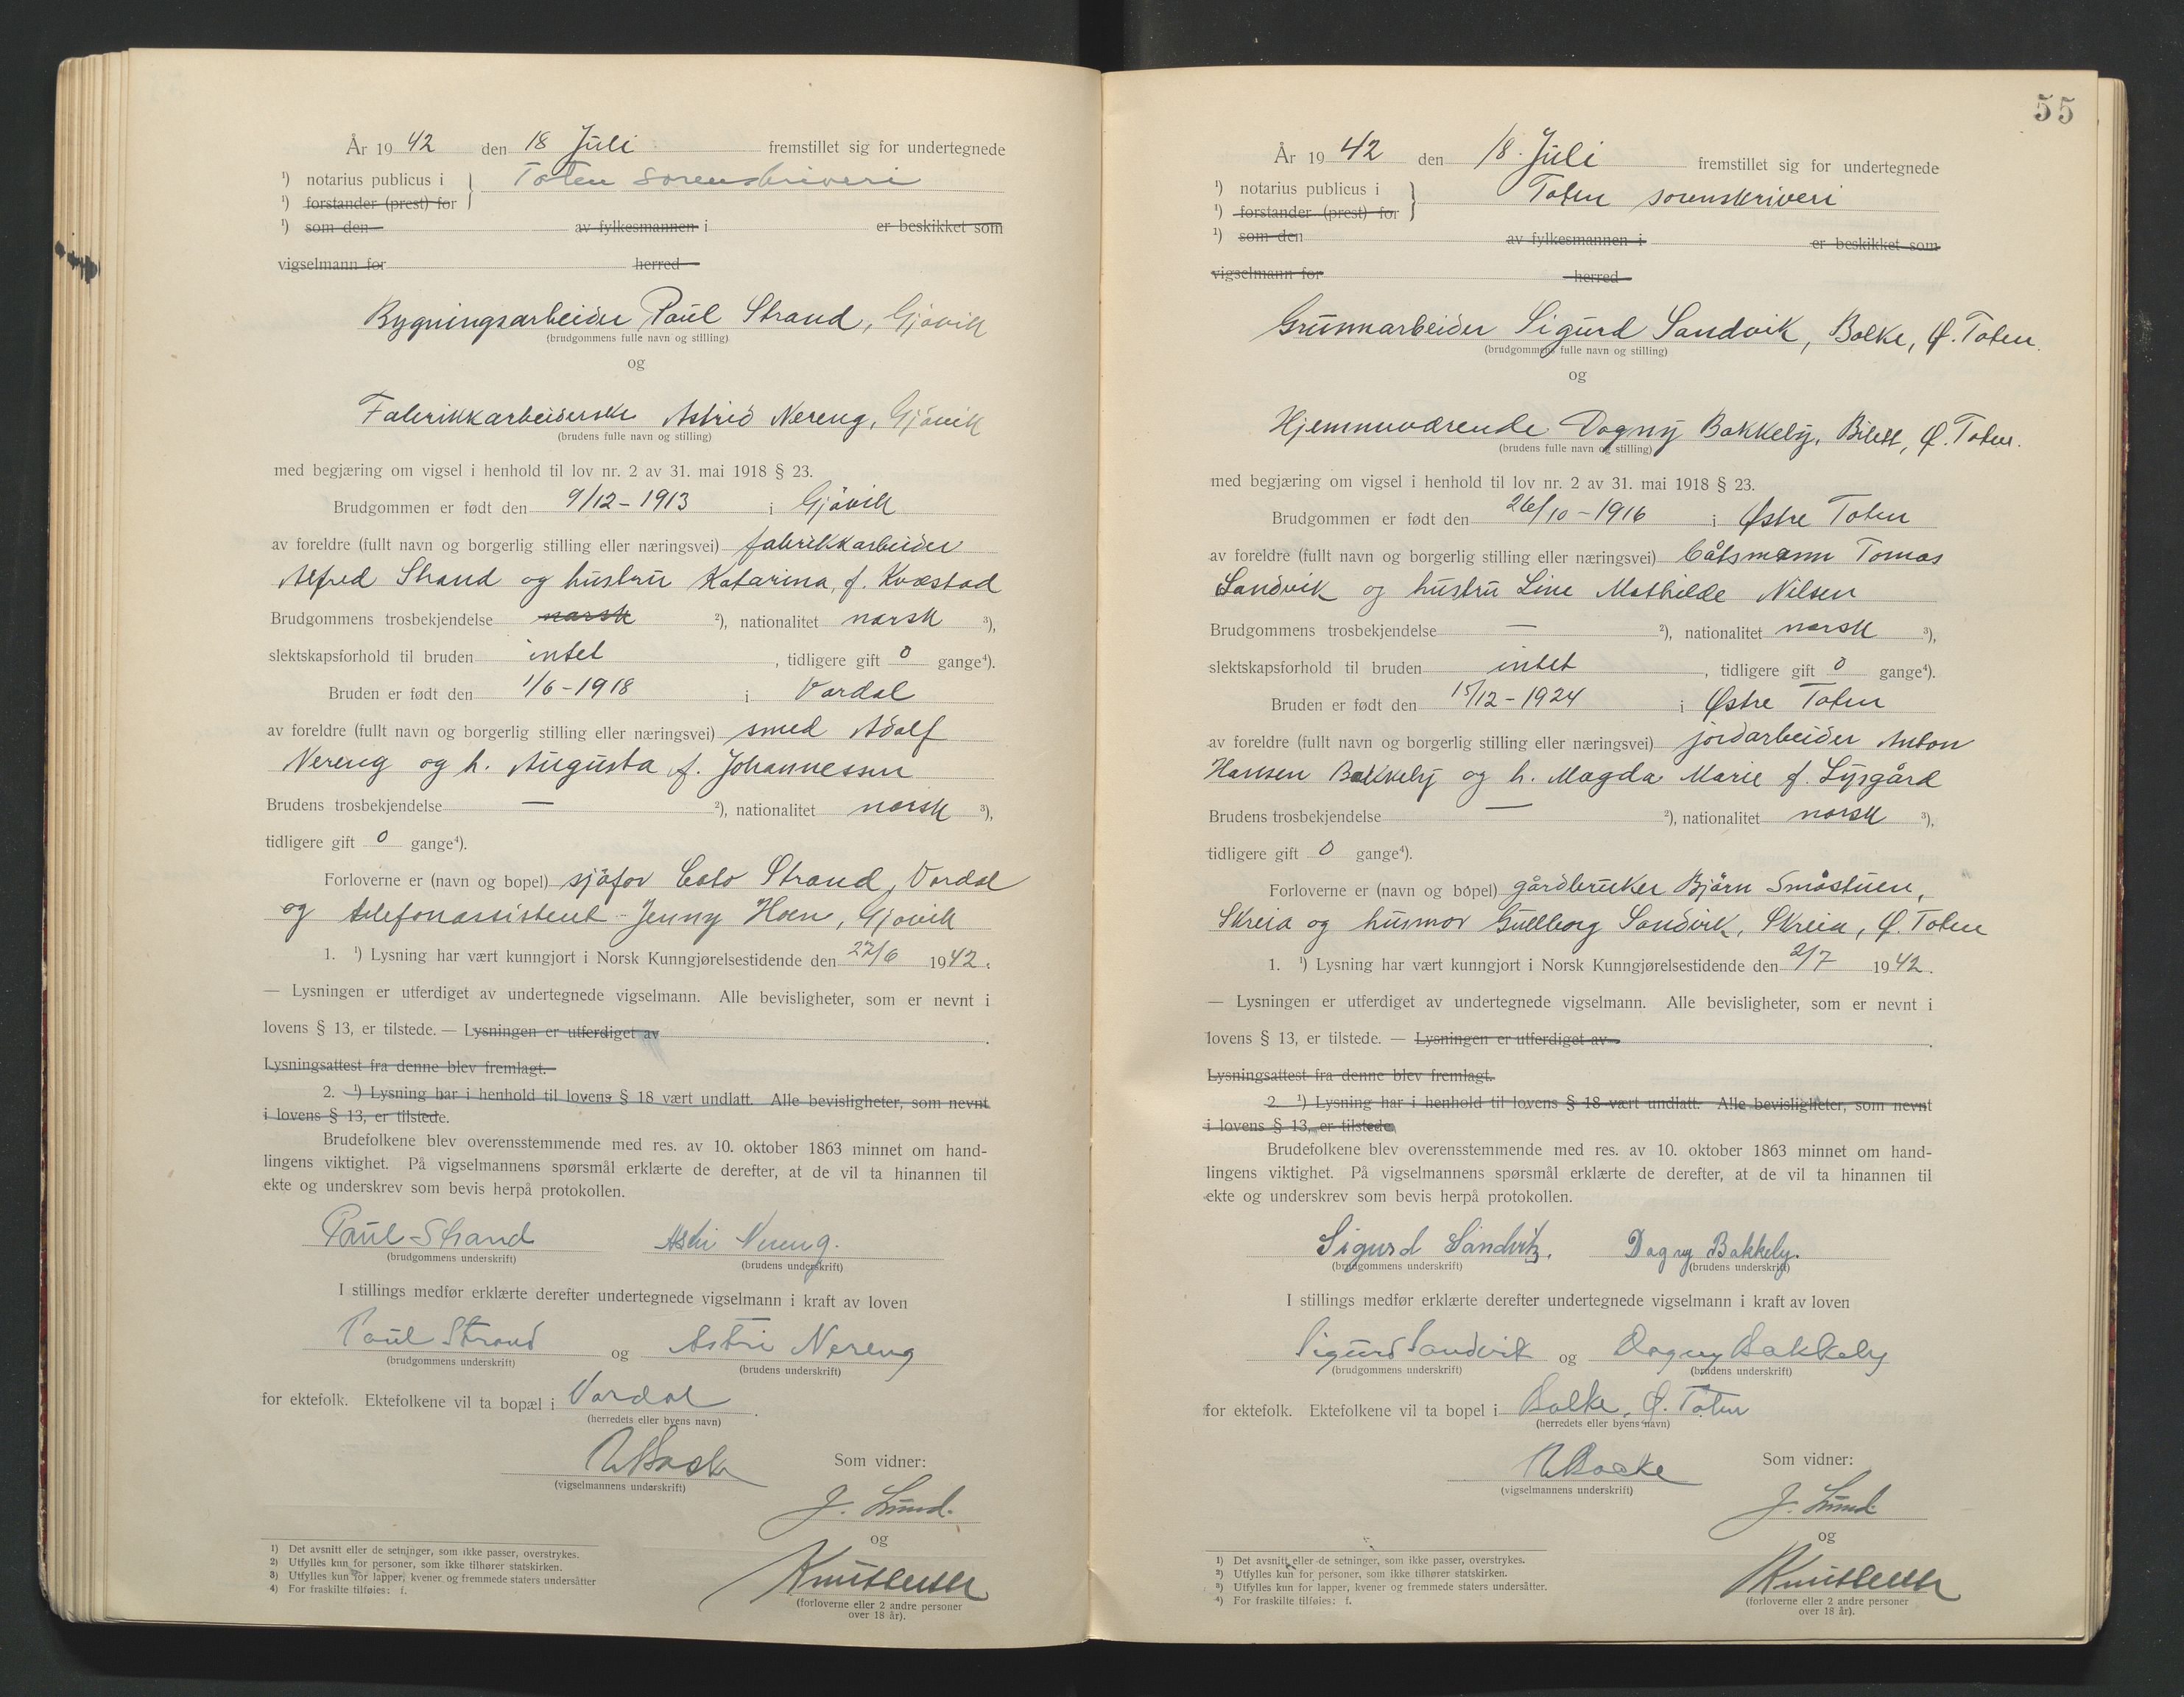 År 19 42 den 18 Juli fremstillet sig for undertegnede
¹) notarius publicus i } Toten sorenskriveri
¹) forstander (prest) for
¹) som den av fylkesmannen i er beskikket som
vigselmann for herred
Bygningsarbeider Paul Strand, Gjøvik
(brudgommens fulle navn og stilling)
og
Fabrikkarbeiderske Astrid Nereng, Gjøvik
(brudens fulle navn og stilling)
med begjæring om vigsel i henhold til lov nr. 2 av 31. mai 1918 § 23.
Brudgommen er født den 9/12 - 1913 i Gjøvik
av foreldre (fullt navn og borgerlig stilling eller næringsvei) fabrikkarbeider
Alfred Strand og hustru Katarina, f. Kvæstad
Brudgommens trosbekjendelse norsk ²), nationalitet norsk ³),
slektskapsforhold til bruden intet , tidligere gift 0 gange⁴).
Bruden er født den 1/6 - 1918 i Vardal
av foreldre (fullt navn og borgerlig stilling eller næringsvei) smed Adolf
Nereng og h. Augusta f. Johannessen
Brudens trosbekjendelse — ²), nationalitet norsk ³),
tidligere gift 0 gange⁴).
Forloverne er (navn og bopel) sjåfør Strand, Vardal
og telefonassistent Jenny Hoen, Gjøvik
1. ¹) Lysning har vært kunngjort i Norsk Kunngjørelsestidende den /6 1942.
— Lysningen er utferdiget av undertegnede vigselmann. Alle bevisligheter, som er nevnt i
lovens § 13, er tilstede. — Lysningen er utferdiget av .
Lysningsattest fra denne blev fremlagt.
2. ¹) Lysning har i henhold til lovens § 18 vært undlatt. Alle bevisligheter, som nevnt
i lovens § 13, er tilstede.
Brudefolkene blev overensstemmende med res. av 10. oktober 1863 minnet om hand-
lingens viktighet. På vigselmannens spørsmål erklærte de derefter, at de vil ta hinannen til
ekte og underskrev som bevis herpå protokollen.
Paul Strand Astri Nereng.
(brudgommens underskrift) (brudens underskrift)
I stillings medfør erklærte derefter undertegnede vigselmann i kraft av loven
Paul Strand og Astri Nereng
(brudgommens underskrift) (brudens underskrift)
for ektefolk. Ektefolkene vil ta bopæl i Vardal .
(herredets eller byens navn)
Som vidner:
(vigselmannens underskrift)
J. Lund.
og
(forloverne eller 2 andre personer
over 18 år).
1) Det avsnitt eller de setninger, som ikke passer, overstrykes.
2) Utfylles kun for personer, som ikke tilhører statskirken.
3) Utfylles kun for lapper, kvener og fremmede staters undersåtter
4) For fraskilte tilføies: f.
55
År 19 42 den 18. Juli fremstillet sig for undertegnede
¹) notarius publicus i } Toten sorenskriveri
¹) forstander (prest) for
¹) som den av fylkesmannen i er beskikket som
vigselmann for herred
Grunnarbeider Sigurd Sandvik, Bolke, Ø. Toten.
(brudgommens fulle navn og stilling)
og
Hjemmeværende Dagny Bakkeby, Bilitt, Ø. Toten.
(brudens fulle navn og stilling)
med begjæring om vigsel i henhold til lov nr. 2 av 31. mai 1918 § 23.
Brudgommen er født den 26/10 - 1916 i Østre Toten
av foreldre (fullt navn og borgerlig stilling eller næringsvei) båtsmann Tomas
Sandvik og hustru Line Mathilde Nilsen
Brudgommens trosbekjendelse — ²), nationalitet norsk ³),
slektskapsforhold til bruden intet , tidligere gift 0 gange⁴).
Bruden er født den 15/12 - 1924 i Østre Toten
av foreldre (fullt navn og borgerlig stilling eller næringsvei) jordarbeider Anton
Hansen Bakkeby og h. Magda Marie f. Lysgård
Brudens trosbekjendelse — ²), nationalitet norsk ³),
tidligere gift 0 gange⁴).
Forloverne er (navn og bopel) gårdbruker Bjørn Smøstuen,
Skreia og husmor Gullborg Sandvik, Skreia, Ø. Toten
1. ¹) Lysning har vært kunngjort i Norsk Kunngjørelsestidende den 2/7 1942.
— Lysningen er utferdiget av undertegnede vigselmann. Alle bevisligheter, som er nevnt i
lovens § 13, er tilstede. — Lysningen er utferdiget av .
Lysningsattest fra denne blev fremlagt.
2. ¹) Lysning har i henhold til lovens § 18 vært undlatt. Alle bevisligheter, som nevnt
i lovens § 13, er tilstede.
Brudefolkene blev overensstemmende med res. av 10. oktober 1863 minnet om hand-
lingens viktighet. På vigselmannens spørsmål erklærte de derefter, at de vil ta hinannen til
ekte og underskrev som bevis herpå protokollen.
Sigurd Sandvik. Dagny Bakkeby.
(brudgommens underskrift) (brudens underskrift)
I stillings medfør erklærte derefter undertegnede vigselmann i kraft av loven
Sigurd Sandvik og Dagny Bakkeby
(brudgommens underskrift) (brudens underskrift)
for ektefolk. Ektefolkene vil ta bopel i Bolke, Ø. Toten
(herredets eller byens navn)
Som vidner:
(vigselmannens underskrift)
J. Lund.
og
(forloverne eller 2 andre personer
over 18 år).
¹) Det avsnitt eller de setninger, som ikke passer, overstrykes.
²) Utfylles kun for personer, som ikke tilhører statskirken.
³) Utfylles kun for lapper, kvener og fremmede staters undersåtter.
⁴) For fraskilte tilføies: f.